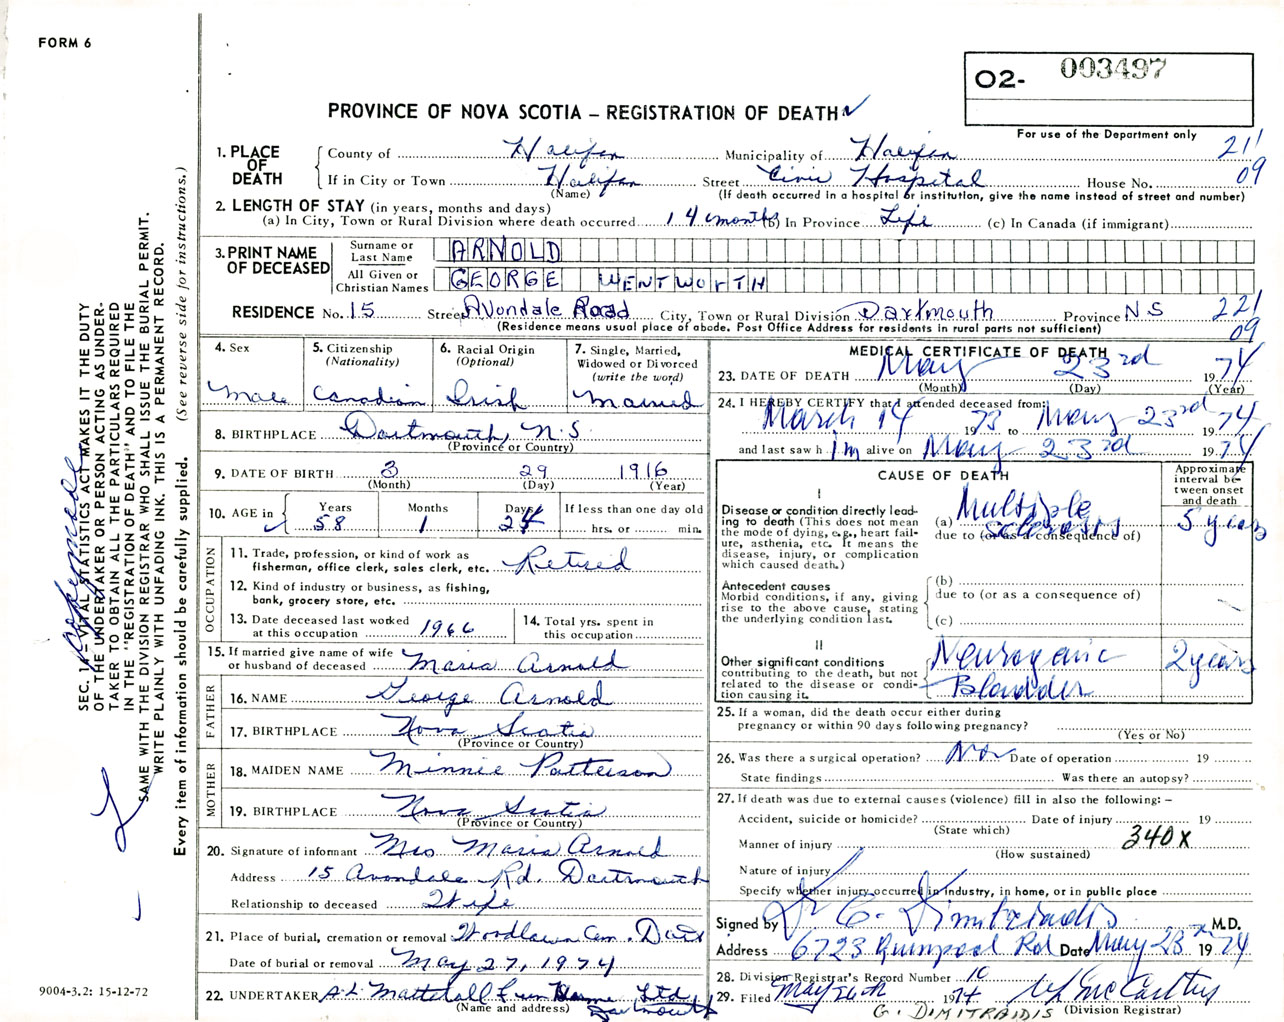 FORM 6
O2- 003497
PROVINCE OF NOVA SCOTIA – REGISTRATION OF DEATH
For use of the Department only
1. PLACE OF DEATH
County of Halifax Municipality of Halifax 211
If in City or Town Halifax Street Civic Hospital House No. 09
(Name) (If death occurred in a hospital or institution, give the name instead of street and number)
2. LENGTH OF STAY (in years, months and days)
(a) In City, Town or Rural Division where death occurred 14 months (b) In Province Life (c) In Canada (if immigrant)
3. PRINT NAME OF DECEASED
Surname or Last Name ARNOLD
All Given or Christian Names GEORGE WENTWORTH
RESIDENCE No. 15 Street Avondale Road City, Town or Rural Division Dartmouth Province NS 221
(Residence means usual place of abode. Post Office Address for residents in rural parts not sufficient) 09
4. Sex Male
5. Citizenship (Nationality) Canadian
6. Racial Origin (Optional) Irish
7. Single, Married, Widowed or Divorced (write the word) Married
8. BIRTHPLACE Dartmouth, N.S.
(Province or Country)
9. DATE OF BIRTH 3 29 1916
(Month) (Day) (Year)
10. AGE in Years 58 Months 1 Days 24 If less than one day old hrs. or min.
OCCUPATION
11. Trade, profession, or kind of work as fisherman, office clerk, sales clerk, etc. Retired
12. Kind of industry or business, as fishing, bank, grocery store, etc.
13. Date deceased last worked at this occupation 1966
14. Total yrs. spent in this occupation
15. If married give name of wife or husband of deceased Maria Arnold
FATHER
16. NAME George Arnold
17. BIRTHPLACE Nova Scotia
(Province or Country)
MOTHER
18. MAIDEN NAME Minnie Patterson
19. BIRTHPLACE Nova Scotia
(Province or Country)
20. Signature of informant Mrs Maria Arnold
Address 15 Avondale Rd. Dartmouth
Relationship to deceased Wife
21. Place of burial, cremation or removal Woodlawn Cem. Dart
Date of burial or removal May 27, 1974
22. UNDERTAKER A.L. Mattatall Fun Home Ltd.
(Name and address) Dartmouth
MEDICAL CERTIFICATE OF DEATH
23. DATE OF DEATH May 23rd 1974
(Month) (Day) (Year)
24. I HEREBY CERTIFY that I attended deceased from:
March 14 1973 to May 23rd 1974
and last saw h im alive on May 23rd 1974
CAUSE OF DEATH
Approximate interval between onset and death
I
Disease or condition directly leading to death (This does not mean the mode of dying, e.g., heart failure, asthenia, etc. It means the disease, injury, or complication which caused death.)
(a) Multiple sclerosis 5 years
due to (or as a consequence of)
Antecedent causes
Morbid conditions, if any, giving rise to the above cause, stating the underlying condition last.
(b)
due to (or as a consequence of)
(c)
II
Other significant conditions contributing to the death, but not related to the disease or condition causing it.
Neurogenic Bladder 2 years
25. If a woman, did the death occur either during pregnancy or within 90 days following pregnancy?
(Yes or No)
26. Was there a surgical operation? No Date of operation 19
State findings Was there an autopsy?
27. If death was due to external causes (violence) fill in also the following: –
Accident, suicide or homicide? Date of injury 19
(State which)
Manner of injury 340X
(How sustained)
Nature of injury
Specify whether injury occurred in industry, in home, or in public place
Signed by Dr G. Dimitriadis M.D.
Address 6723 Quinpool Rd Date May 23 1974
28. Division Registrar's Record Number 10
29. Filed May 26th 1974 McCarthy
G. DIMITRAIDIS (Division Registrar)
SEC. 14 – VITAL STATISTICS ACT MAKES IT THE DUTY
OF THE UNDERTAKER OR PERSON ACTING AS UNDER-
TAKER TO OBTAIN ALL THE PARTICULARS REQUIRED
IN THE "REGISTRATION OF DEATH" AND TO FILE THE
SAME WITH THE DIVISION REGISTRAR WHO SHALL ISSUE THE BURIAL PERMIT.
WRITE PLAINLY WITH UNFADING INK. THIS IS A PERMANENT RECORD.
Every item of information should be carefully supplied. (See reverse side for instructions.)
9004-3.2: 15-12-72